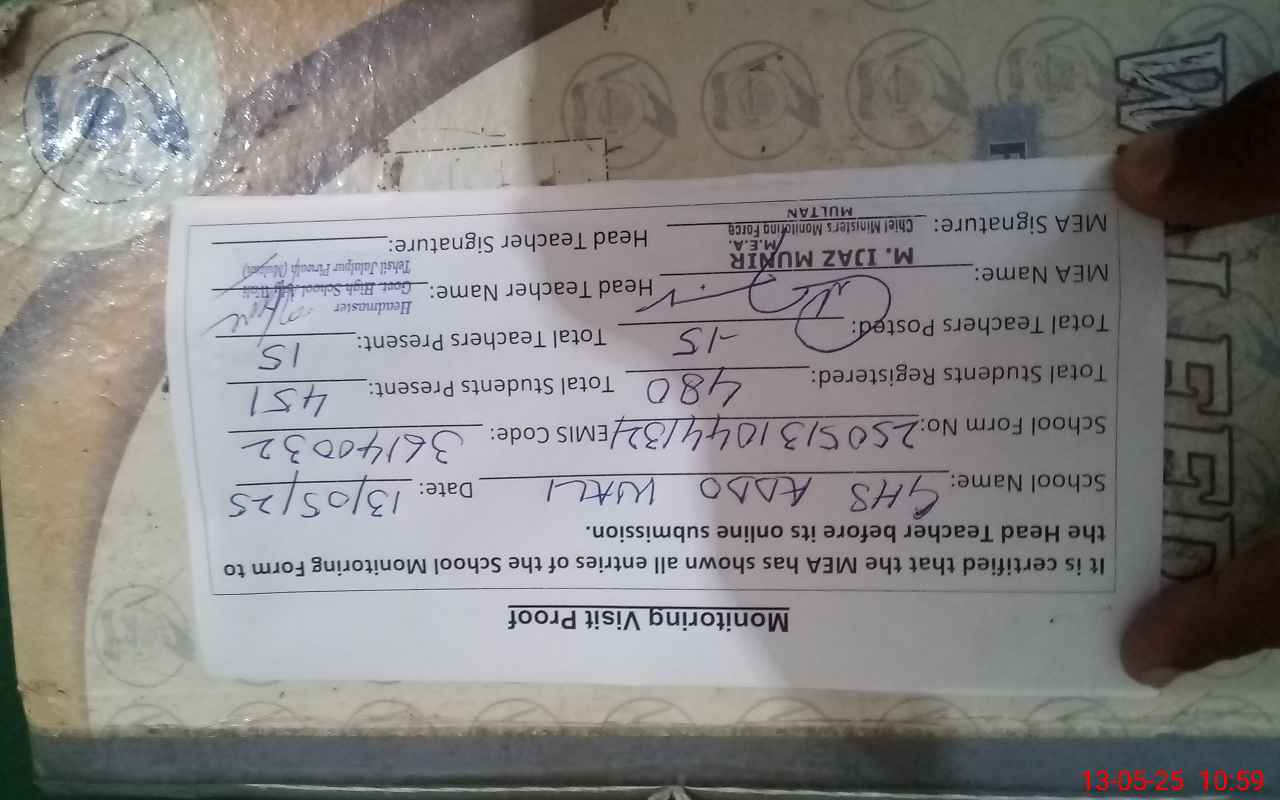 Monitoring Visit Proof
It is certified that the MEA has shown all entries of the School Monitoring Form to
the Head Teacher before its online submission.
School Name: GHS ADDO WALI Date: 13/05/25
School Form No: 2505131044132 EMIS Code: 36140032
Total Students Registered: 480 Total Students Present: 451
Total Teachers Posted: -15 Total Teachers Present: 15
MEA Name: Head Teacher Name:
M. IJAZ MUNIR
M.E.A.
Chief Minister's Monitoring Force
MULTAN
Headmaster
Govt. High School Wali
Tehsil Jalalpur Pirwala (Multan)
MEA Signature: Head Teacher Signature:
13-05-25 10:59